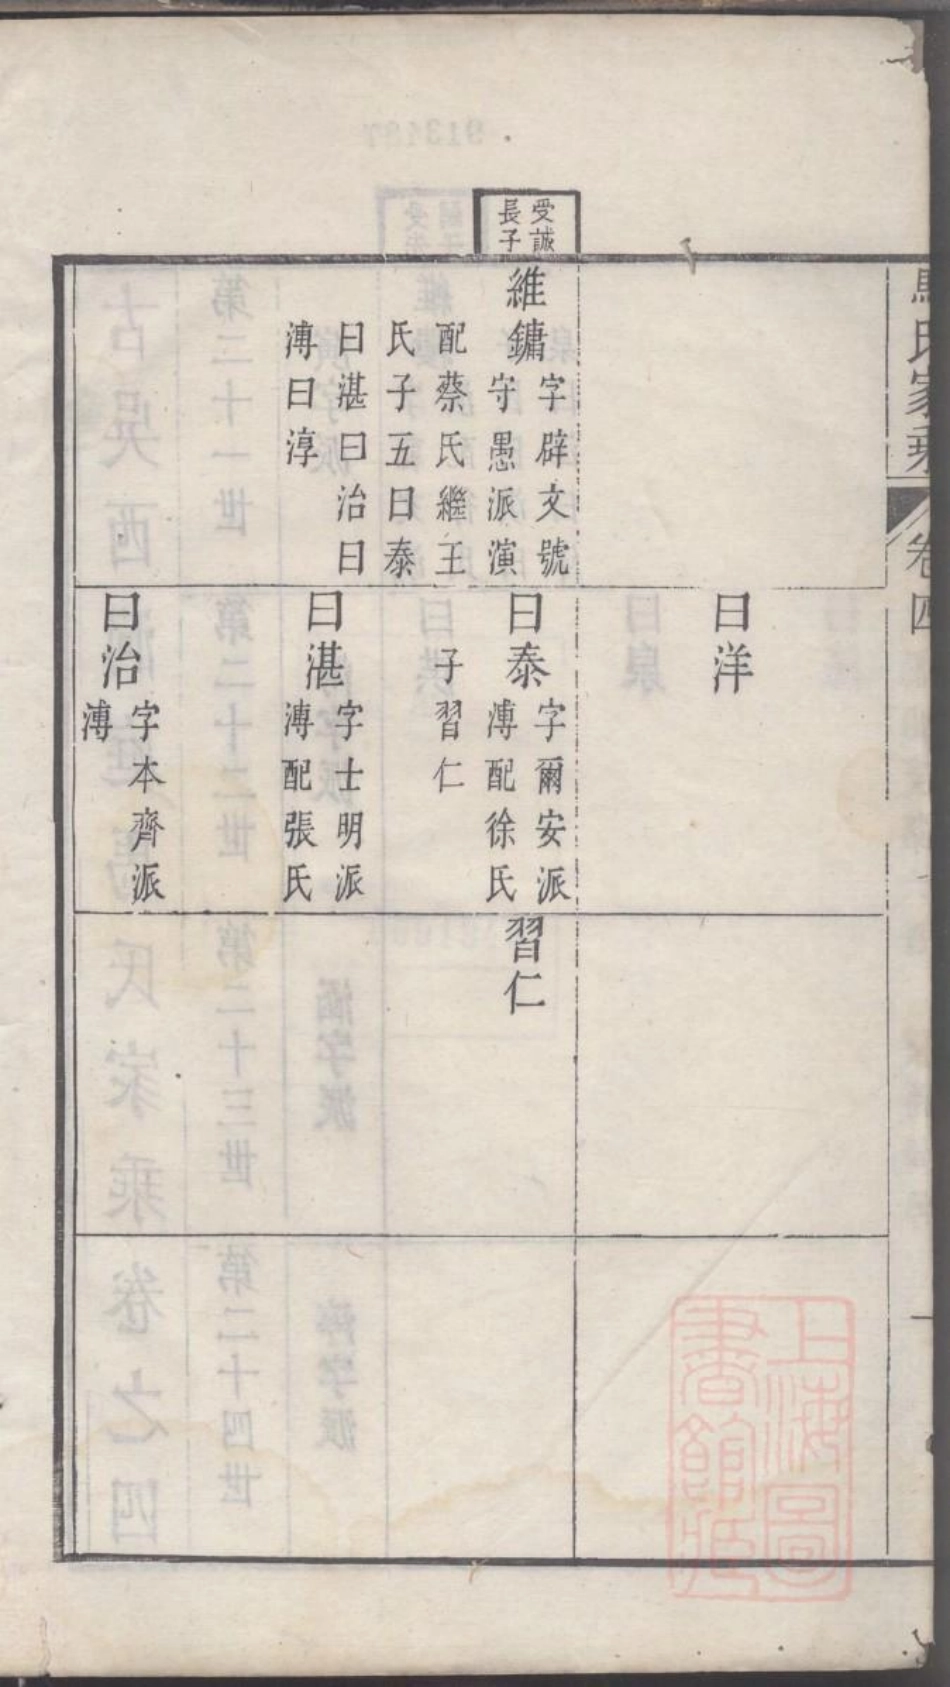 氏家乘
卷四
曰洋
受誠
長子
維鏞
字辟文號
守愚派演
配蔡氏繼王
氏子五曰泰
曰湛曰治曰
溥曰淳
曰泰
字爾安派
溥配徐氏
子習仁
習仁
曰湛
字士明派
溥配張氏
曰治
字本齊派
溥
上海圖
書館藏